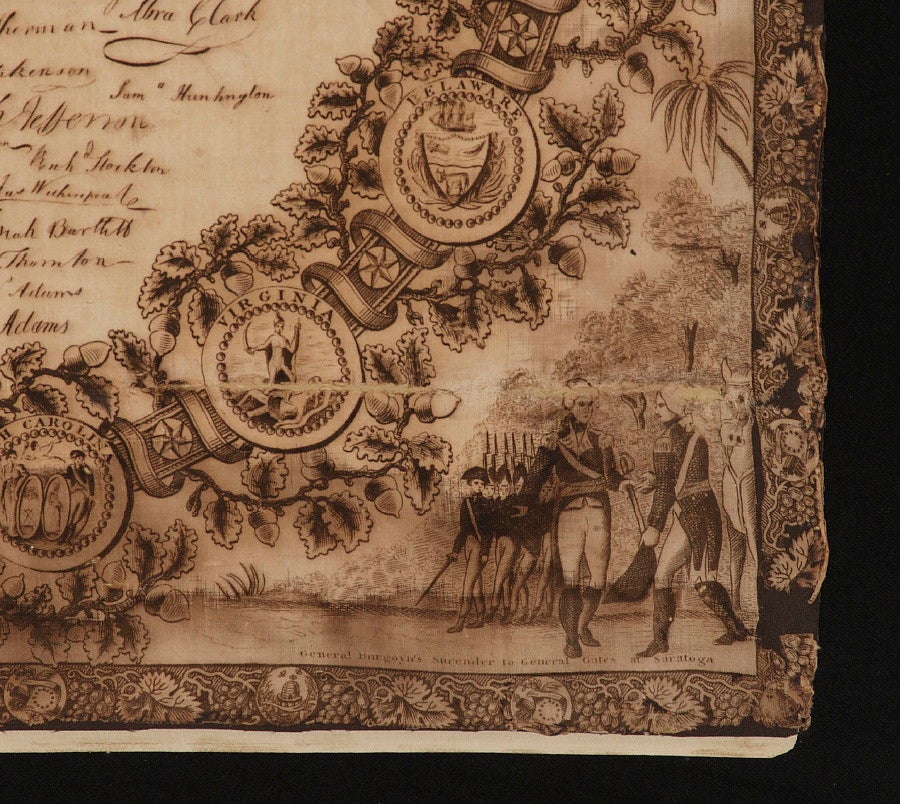 herman — Abra Clark
kinson
Sam^l Huntington
Jefferson
Rich^d Stockton
iah Bartlett
Thornton —
Adams
Adams
DELAWARE
VIRGINIA
CAROLIN
General Burgoyn's Surender to General Gates at Saratoga